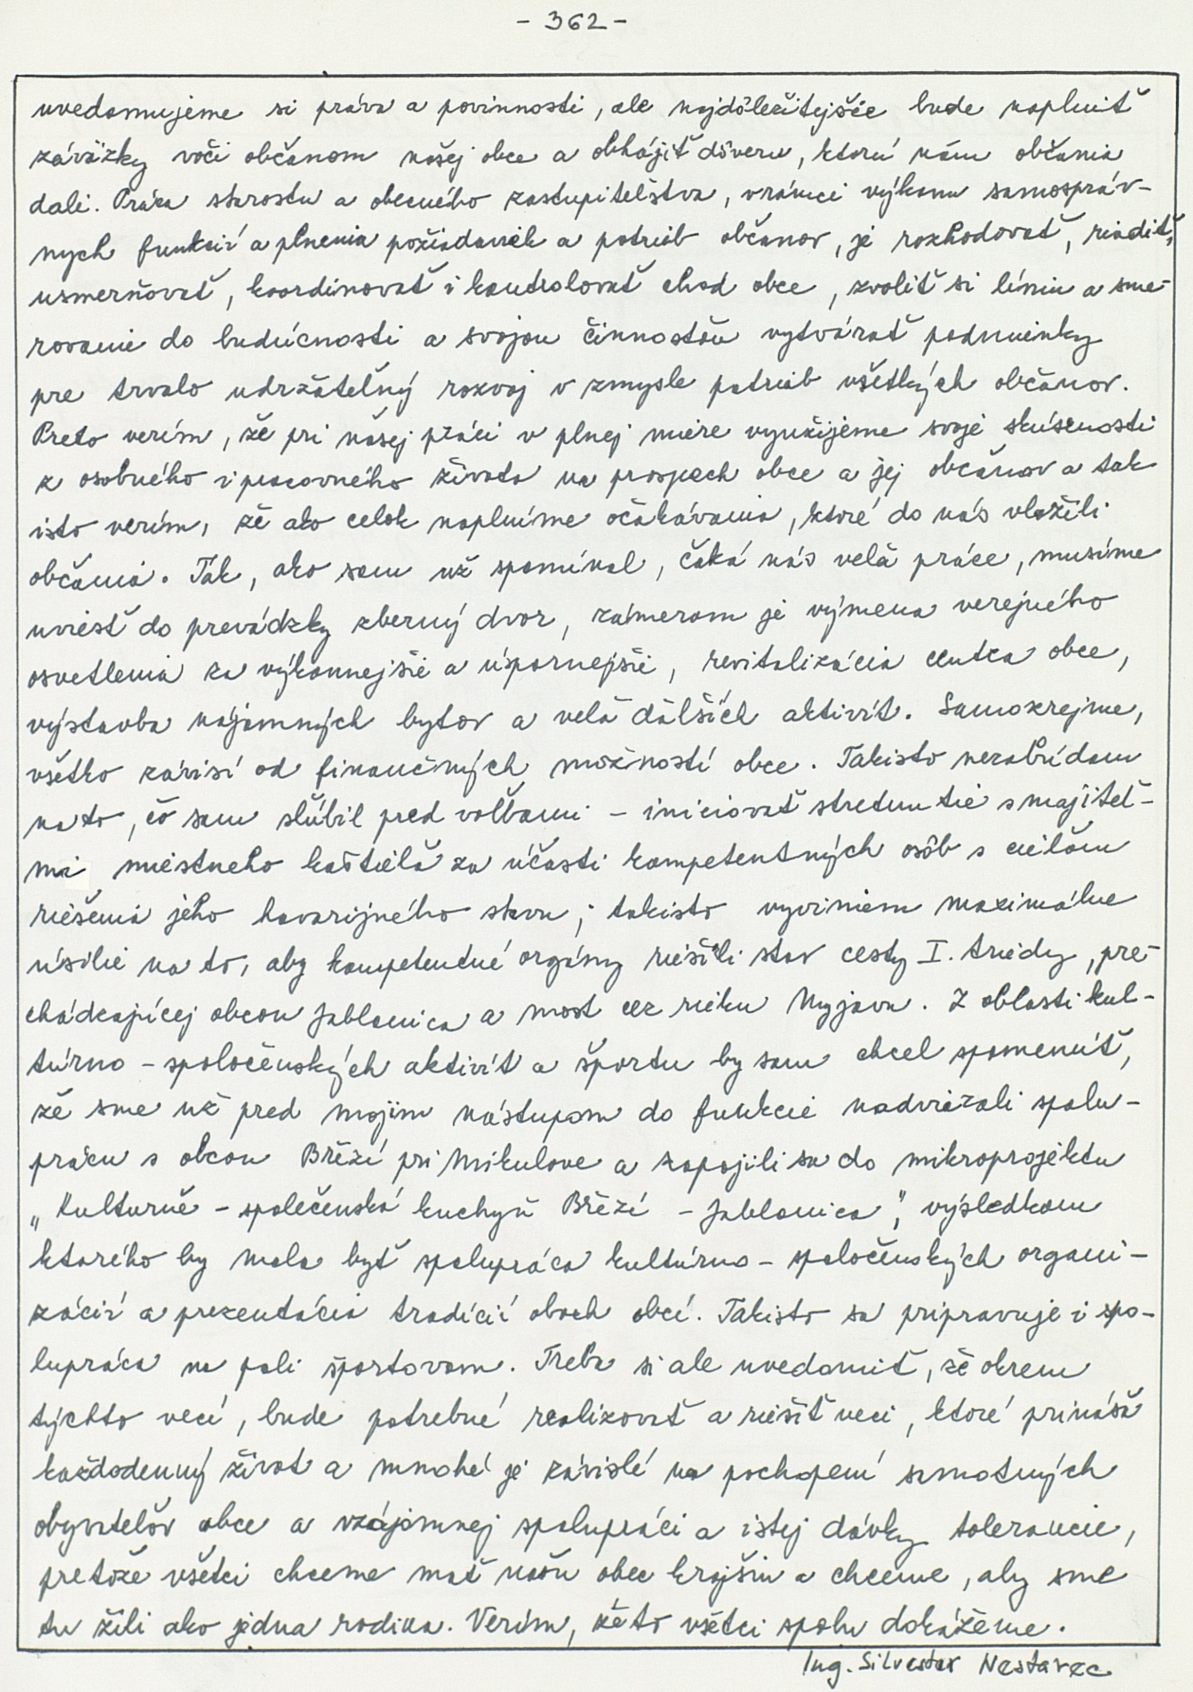 - 362 -
uvedomujeme si práva a povinnosti, ale najdôležitejšie bude naplniť
záväzky voči občanom našej obce a obhájiť dôveru, ktorú nám občania
dali. Práca starostu a obecného zastupiteľstva, vrámci výkonu samospráv-
nych funkcií a plnenia požiadaviek a potrieb občanov, je rozhodovať, riadiť,
usmerňovať, koordinovať i kontrolovať chod obce, zvoliť si líniu a sme-
rovanie do budúcnosti a svojou činnosťou vytvárať podmienky
pre trvalo udržateľný rozvoj v zmysle potrieb všetkých občanov.
Preto verím, že pri našej práci v plnej miere využijeme svoje skúsenosti
z osobného i pracovného života na prospech obce a jej občanov a tak
isto verím, že ako celok naplníme očakávania, ktoré do nás vložili
občania. Tak, ako som už spomínal, čaká nás veľa práce, musíme
uviesť do prevádzky zberný dvor, zámerom je výmena verejného
osvetlenia za výkonnejšie a úspornejšie, revitalizácia centra obce,
výstavba nájomných bytov a veľa ďalších aktivít. Samozrejme,
všetko závisí od finančných možností obce. Takisto nezabúdam
na to, čo som sľúbil pred voľbami - iniciovať stretnutie s majiteľ-
mi miestneho kaštieľa za účasti kompetentných osôb s cieľom
riešenia jeho havarijného stavu; takisto vyviniem maximálne
úsilie na to, aby kompetentné orgány riešili stav cesty I. triedy, pre-
chádzajúcej obcou Jablonica a most cez rieku Myjava. Z oblasti kul-
túrno - spoločenských aktivít a športu by som chcel spomenúť,
že sme už pred mojim nástupom do funkcie nadviazali spolu-
prácu s obcou Březí pri Mikulove a zapojili sa do mikroprojektu
„Kulturně - společenská kuchyň Březí - Jablonica", výsledkom
ktorého by mala byť spolupráca kultúrno - spoločenských organi-
zácií a prezentácia tradícií oboch obcí. Takisto sa pripravuje i spo-
lupráca na poli športovom. Treba si ale uvedomiť, že okrem
týchto vecí, bude potrebné realizovať a riešiť veci, ktoré prináša
každodenný život a mnohé je závislé na pochopení samotných
obyvateľov obce a vzájomnej spolupráci a istej dávky tolerancie,
pretože všetci chceme mať našu obec krajšiu a chceme, aby sme
tu žili ako jedna rodina. Verím, že to všetci spolu dokážeme.
Ing. Silvester Nestarec